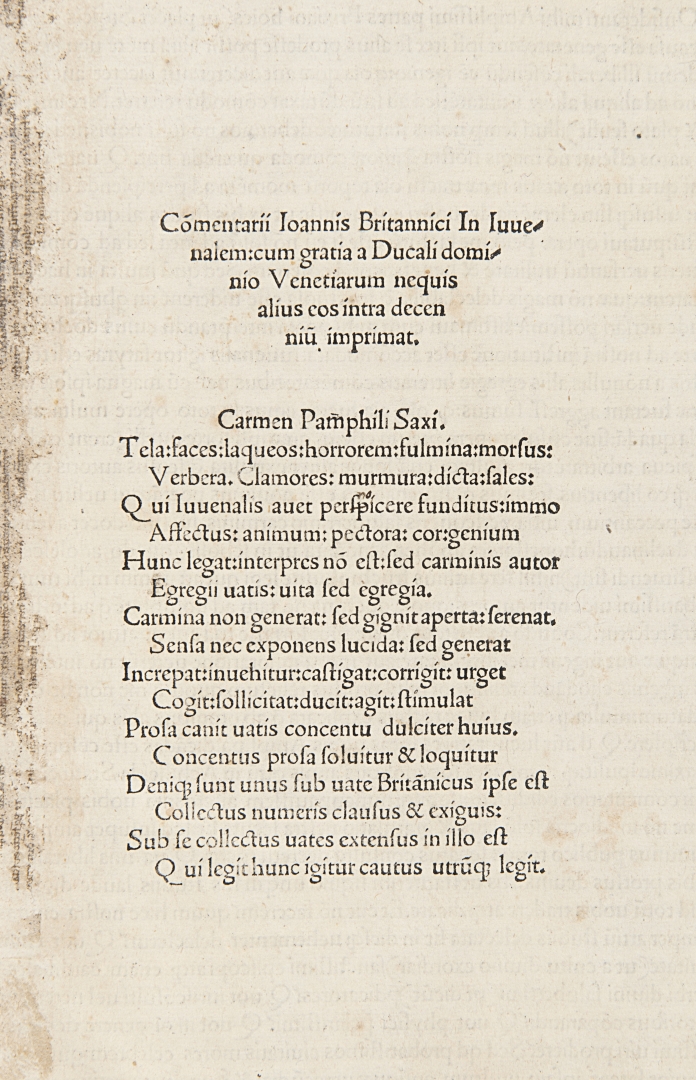 Cōmentarii Ioannis Britannici In Iuue⸗
nalem:cum gratia a Ducali domi⸗
nio Venetiarum nequis
alius eos intra decen
niū imprimat.
Carmen Pam̄phili Saxi.
Tela:faces:laqueos:horrorem:fulmina:morſus:
Verbera. Clamores: murmura:dicta:ſales:
Qui Iuuenalis auet perſpicere funditus:immo
Affectus: animum: pectora: cor:genium
Hunc legat:interpres nō eſt:ſed carminis autor
Egregii uatis: uita ſed egregia.
Carmina non generat: ſed gignit aperta: ſerenat.
Senſa nec exponens lucida: ſed generat
Increpat:inuehitur:caſtigat:corrigit: urget
Cogit:ſollicitat:ducit:agit:ſtimulat
Proſa canit uatis concentu dulciter huius.
Concentus proſa ſoluitur & loquitur
Deniq; ſunt unus ſub uate Britānicus ipſe eſt
Collectus numeris clauſus & exiguis:
Sub ſe collectus uates extenſus in illo eſt
Qui legit hunc igitur cautus utrūq; legit.